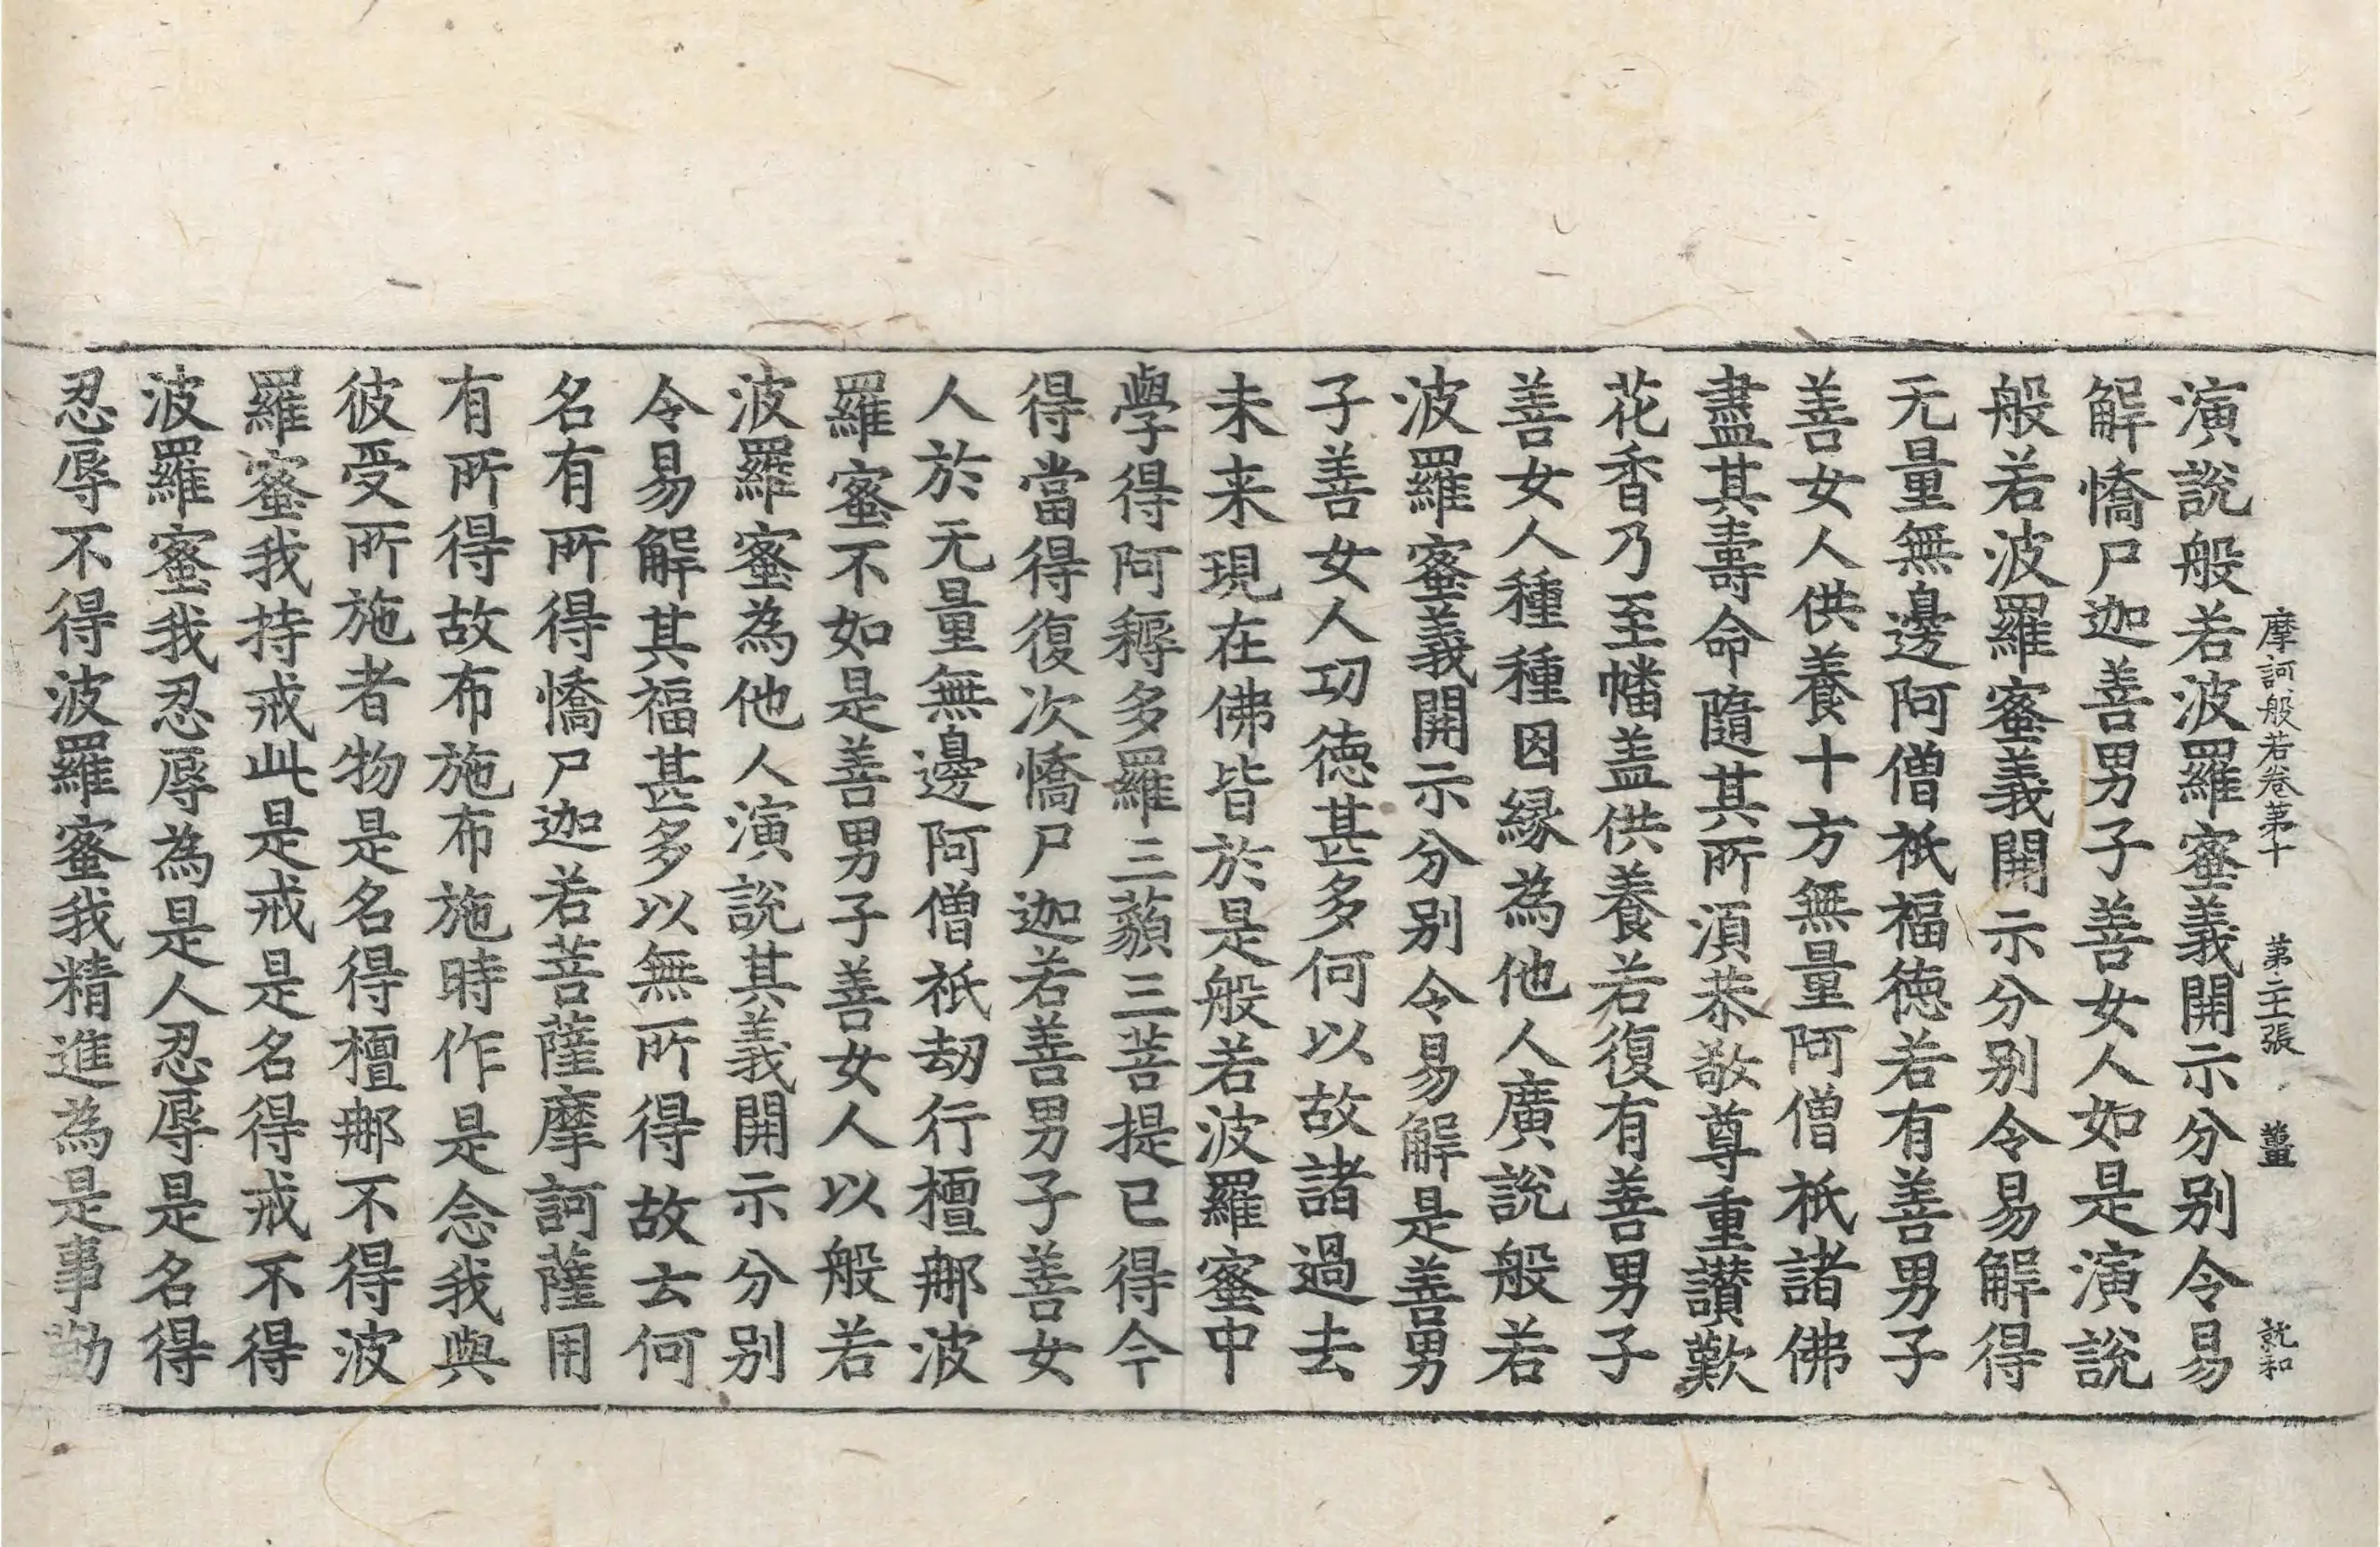 摩訶般若卷苐十　苐二十張　薑　就和
演說般若波羅蜜義開示分別令易
解憍尸迦善男子善女人如是演說
般若波羅蜜義開示分別令易解得
无量無邊阿僧祇福德若有善男子
善女人供養十方無量阿僧祇諸佛
盡其壽命隨其所湏恭敬尊重讃歎
花香乃至幡盖供養若復有善男子
善女人種種因縁為他人廣說般若
波羅蜜義開示分別令易解是善男
子善女人功德甚多何以故諸過去
未来現在佛皆於是般若波羅蜜中
學得阿耨多羅三藐三菩提已得今
得當得復次憍尸迦若善男子善女
人於无量無邊阿僧祇劫行檀那波
羅蜜不如是善男子善女人以般若
波羅蜜為他人演說其義開示分別
令易解其福甚多以無所得故云何
名有所得憍尸迦若菩薩摩訶薩用
有所得故布施布施時作是念我與
彼受所施者物是名得檀那不得波
羅蜜我持戒此是戒是名得戒不得
波羅蜜我忍辱為是人忍辱是名得
忍辱不得波羅蜜我精進為是事勤